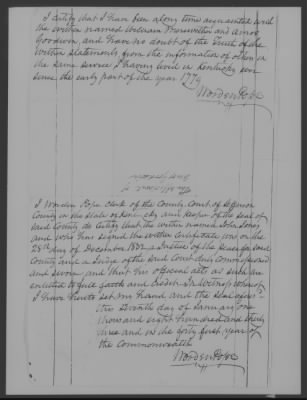 I Certify that I have been a long time acquainted with
the within named William Trumwitter and Amos
Goodwin, and have no doubt of the Truth of the
within Statements from the information of others in
the same service I having lived in Kentucky ever
since the early part of the year 1779
Worden Pope
I Worden Pope clerk of the County Court of Jefferson
County in the State of Kentucky and keeper of the seal of
said County do Certify that the within named John Jones
and who has signed the within Certificate was on the
28th day of December 1832 a Justice of the peace for said
County and a Judge of the said Court duly Commissioned
and sworn and that his official acts as such are
entitled to full faith and credit. In testimony whereof
I have hereto set my hand and the seal of
this Seventh day of January one
thousand eight hundred and thirty
three and in the forty first year of
the Commonwealth
Worden Pope